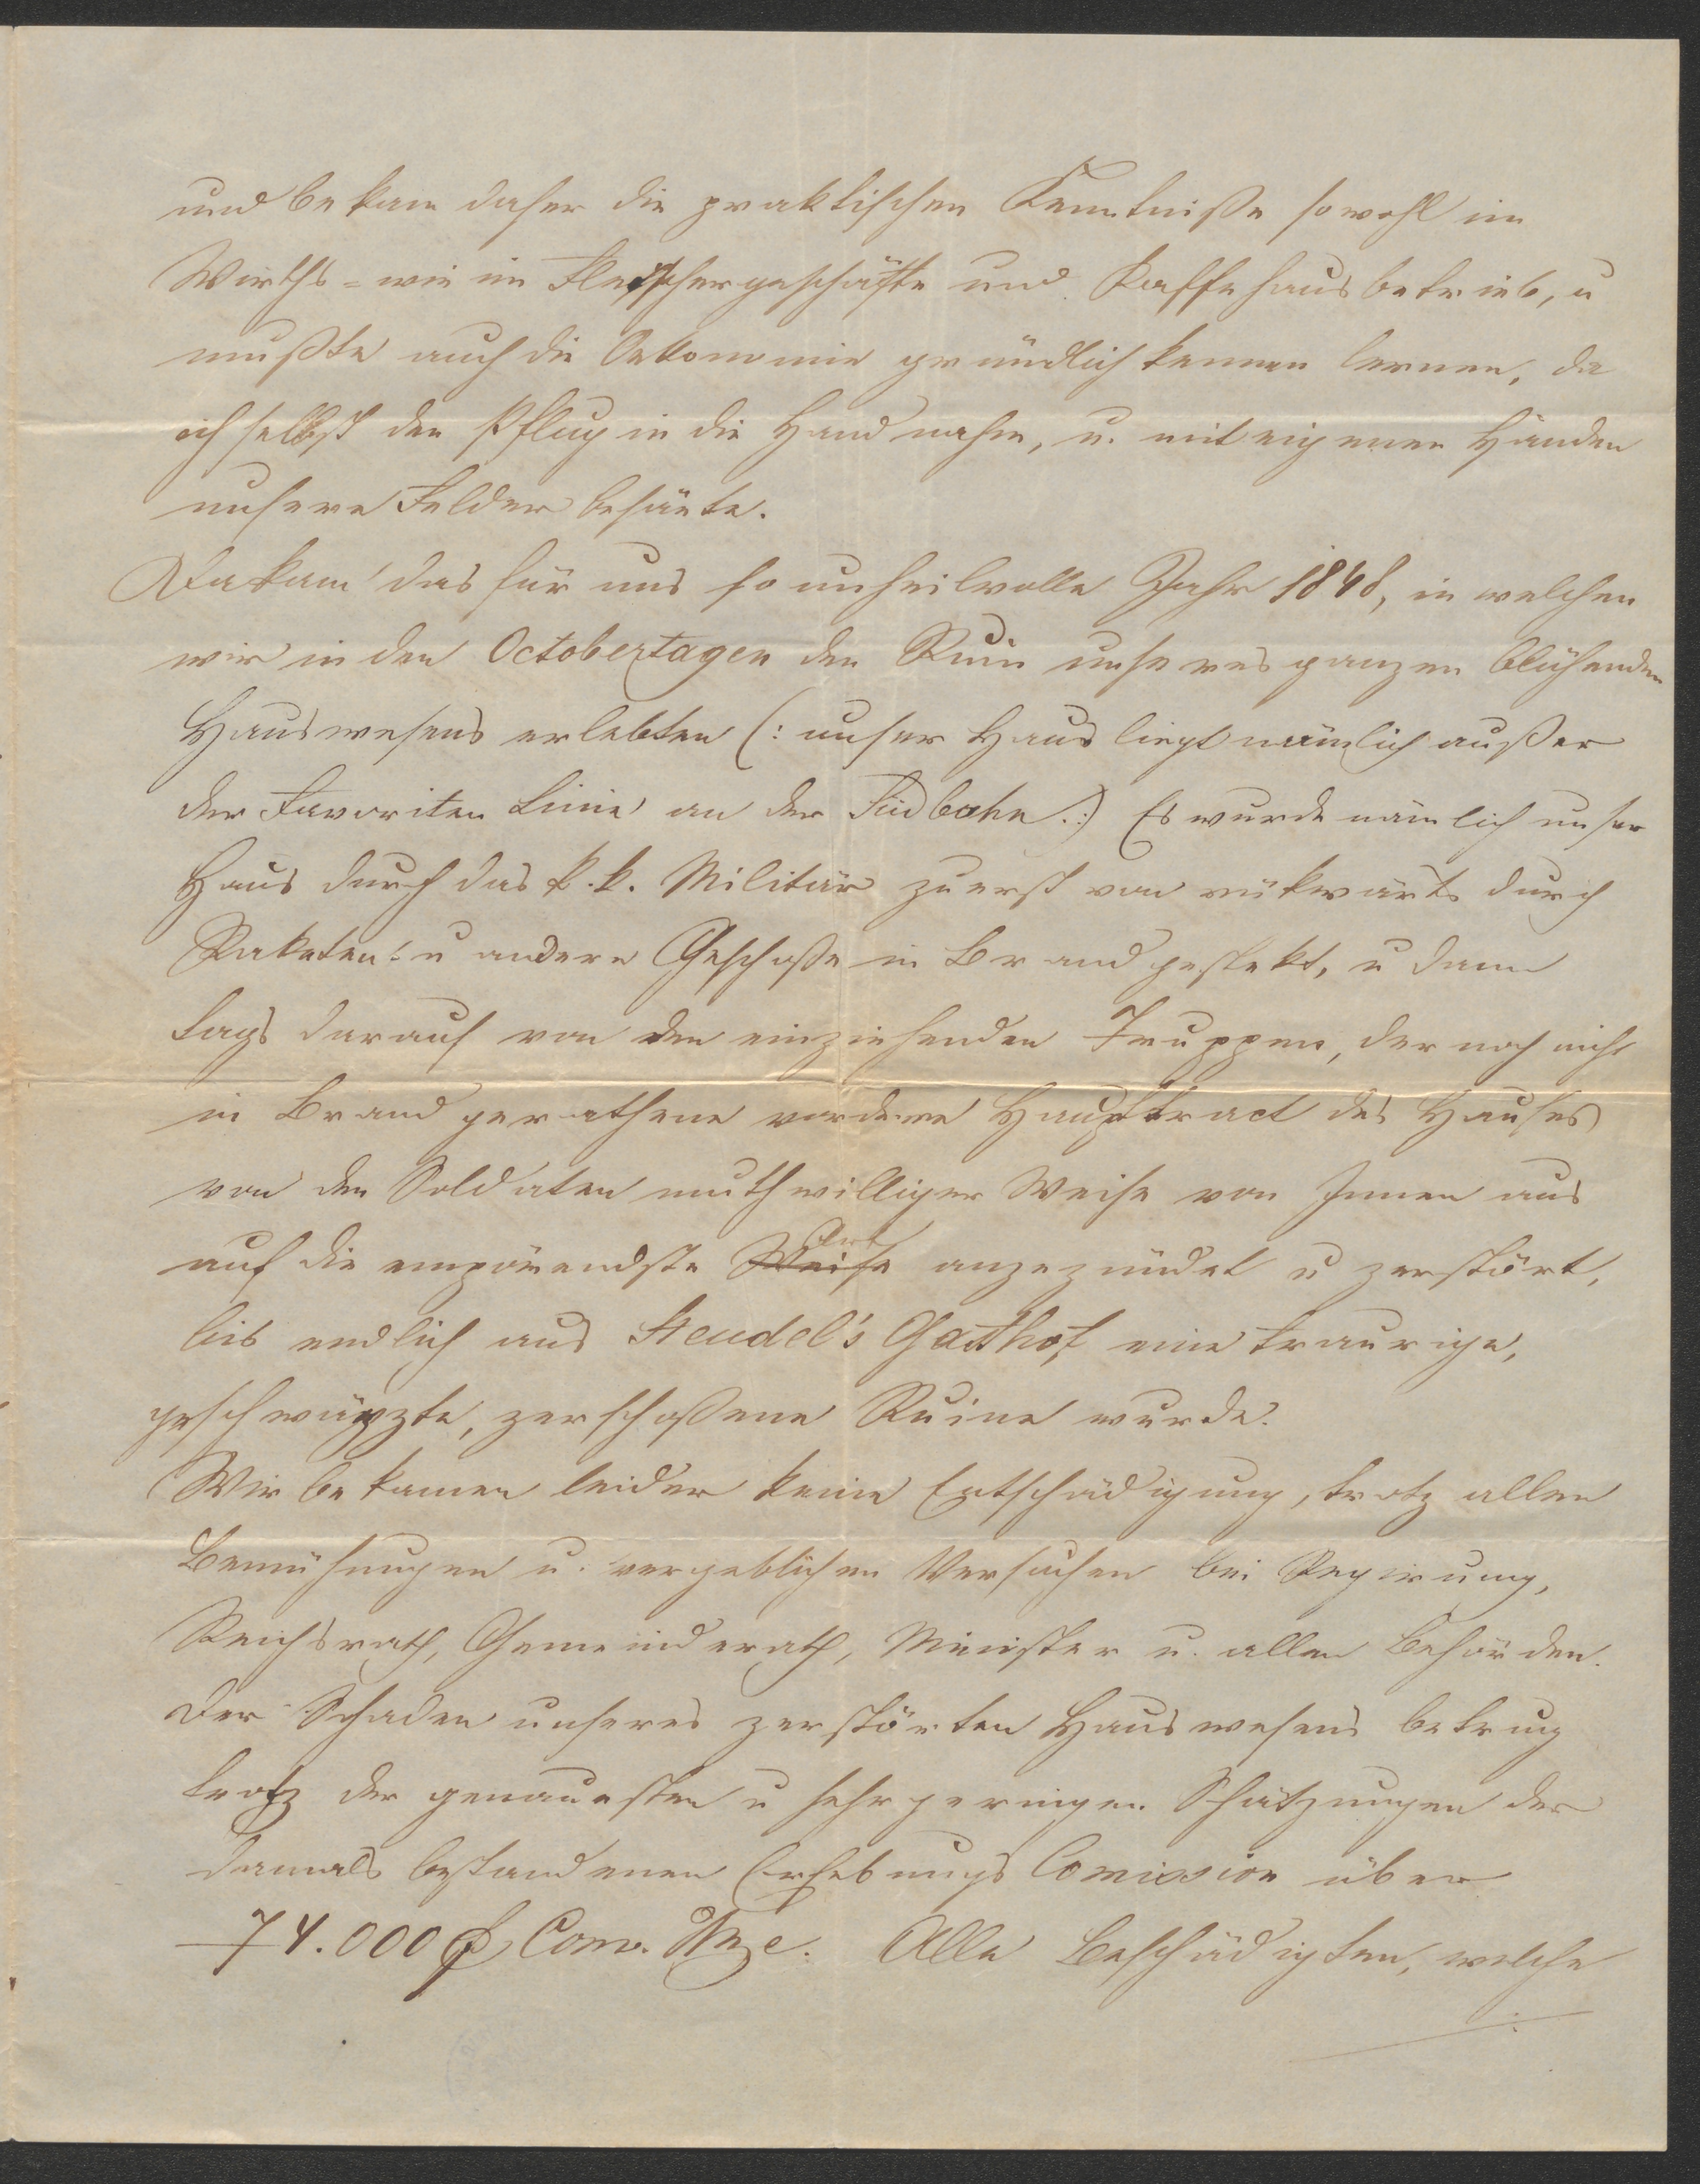 und bekam daher die praktischen Kenntniße sowohl im
Wirths= wie im Fleischergeschäfte und Kaffehausbetrieb, u
mußte auch die Oekonomie gründlich kennen lernen, da
ich selbst den Pflug in die Hand nahm, u. mit eigenen Händen
unsere Felder besäete.
Da kam das für uns so unheilvolle Jahr 1848, in welchen
wir in den Octobertagen den Ruin unseres ganzen blühenden
Hauswesens erlebten (: unser Haus liegt nämlich außer
der Favoriten Linie an der Südbahn :) Es wurde nämlich unser
Haus durch das k. k. Militär zuerst von rükwärts durch
Raketen u andere Geschoße in Brand gestekt, u dann
tags darauf von den einziehenden Truppen, der noch nicht
in Brand gerathene vordere Haupttract des Hauses
von den Soldaten muthwilliger Weise von Innen aus
auf die empörendste Weise Art angezündet u zerstört,
bis endlich aus Steudel's Gasthof eine traurige,
geschwärzte, zerschoßene Ruine wurde.
Wir bekamen leider keine Entschädigung, trotz allen
Bemühungen u. vergeblichen Versuchen bei Regirung,
Reichsrath, Gemeinderath, Minister u. allen Behörden.
Der Schaden unseres zerstörten Hauswesens betrug
trotz der genauesten u sehr geringen Schätzungen der
damals bestandenen Erhebungs Comission über
74.000 f Conv. Mze. Alle Beschädigten, welche